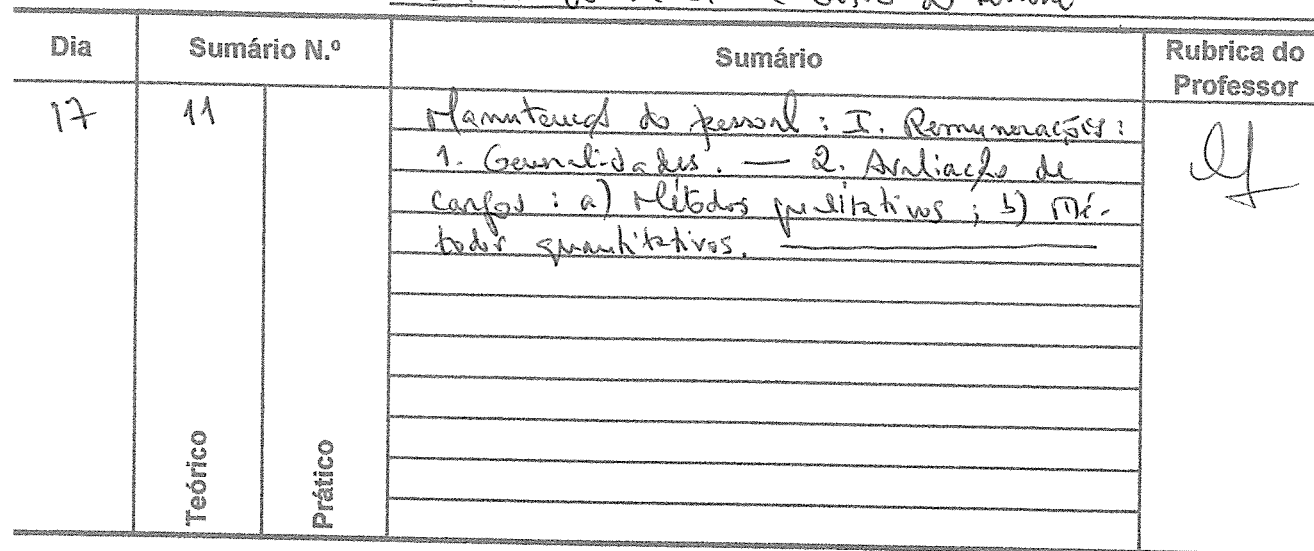 Dia
Sumário N.º
Sumário
Rubrica do
Professor
17
11
Manutenção do pessoal : I. Remunerações :
1. Generalidades. — 2. Avaliação de
cargos : a) Métodos qualitativos ; b) Mé-
todos quantitativos.
Teórico
Prático